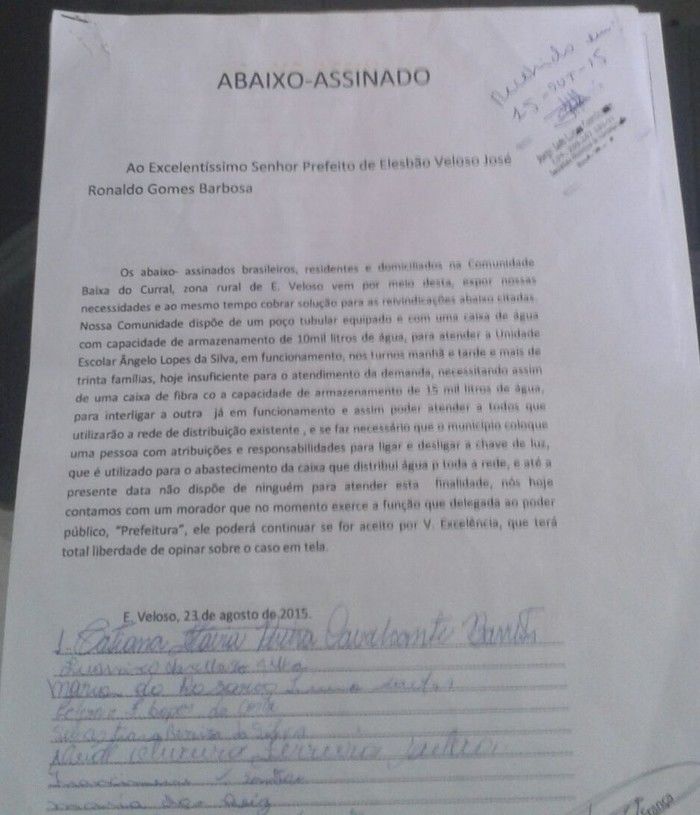 ABAIXO-ASSINADO
Recebido em:
15-OUT-15
Ao Excelentíssimo Senhor Prefeito de Elesbão Veloso José
Ronaldo Gomes Barbosa
Os abaixo- assinados brasileiros, residentes e domiciliados na Comunidade
Baixa do Curral, zona rural de E. Veloso vem por meio desta, expor nossas
necessidades e ao mesmo tempo cobrar solução para as reivindicações abaixo citadas.
Nossa Comunidade dispõe de um poço tubular equipado e com uma caixa de água
com capacidade de armazenamento de 10mil litros de água, para atender a Unidade
Escolar Ângelo Lopes da Silva, em funcionamento, nos turnos manhã e tarde e mais de
trinta famílias, hoje insuficiente para o atendimento da demanda, necessitando assim
de uma caixa de fibra co a capacidade de armazenamento de 15 mil litros de água,
para interligar a outra já em funcionamento e assim poder atender a todos que
utilizarão a rede de distribuição existente , e se faz necessário que o município coloque
uma pessoa com atribuições e responsabilidades para ligar e desligar a chave de luz,
que é utilizado para o abastecimento da caixa que distribui água p toda a rede, e até a
presente data não dispõe de ninguém para atender esta finalidade, nós hoje
contamos com um morador que no momento exerce a função que delegada ao poder
público, “Prefeitura”, ele poderá continuar se for aceito por V. Excelência, que terá
total liberdade de opinar sobre o caso em tela.
E. Veloso, 23 de agosto de 2015.
1- Tatiana Cavalcante
Maria do
Lopes da Costa
Sebastiana da Silva
Ferreira
Maria
França